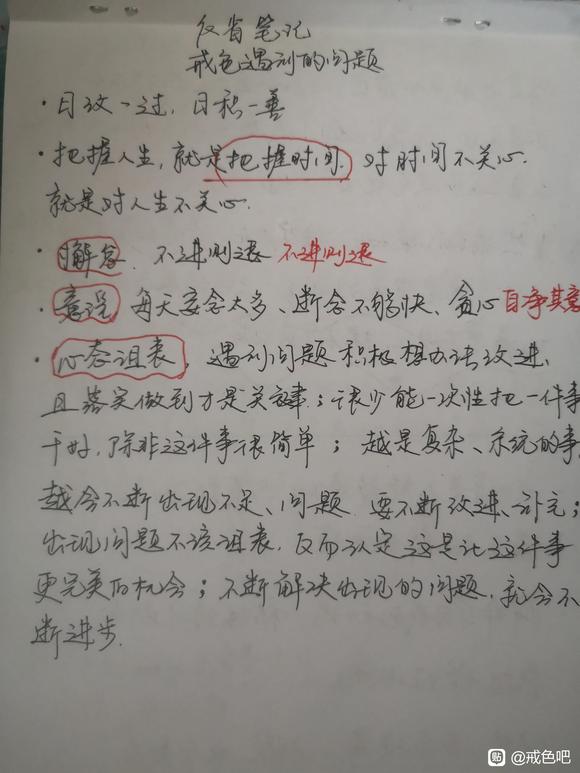 反省笔记
戒色遇到的问题
·日改一过,日积一善
·把握人生,就是把握时间.对时间不关心.
就是对人生不关心.
·懈怠.不进则退 不进则退
·意淫 每天妄念太多、断念不够快、贪心 自净其意
·心态沮丧,遇到问题积极想办法改进,
且落实做到才是关键;很少能一次性把一件事
干好,除非这件事很简单;越是复杂、系统的事,
越会不断出现不足、问题.要不断改进、补充;
出现问题不该沮丧,反而认定这是让这件事
更完美的机会;不断解决出现的问题,就会不
断进步.
贴 @戒色吧